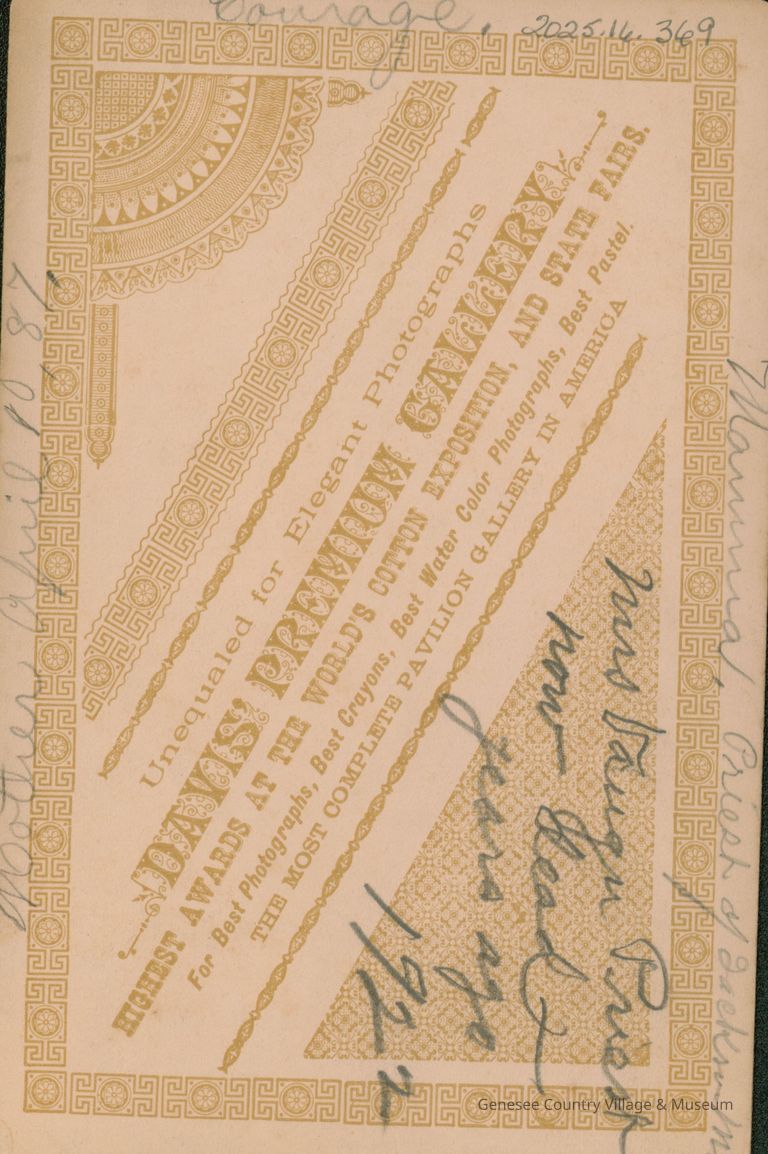 Courage.
2025.16.369
Unequaled for Elegant Photographs
DAVIS' PREMIUM GALLERY
HIGHEST AWARDS AT THE WORLD'S COTTON EXPOSITION, AND STATE FAIRS.
For Best Photographs, Best Crayons, Best Water Color Photographs, Best Pastel.
THE MOST COMPLETE PAVILION GALLERY IN AMERICA
Mother April 10, 87.
Mamma Priest &
Mrs Priest
now dead
years ago
1922
Genesee Country Village & Museum